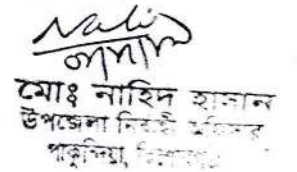 মোঃ নাহিদ হাসান
উপজেলা নির্বাহী অফিসার
পাকুন্দিয়া, কিশোরগঞ্জ